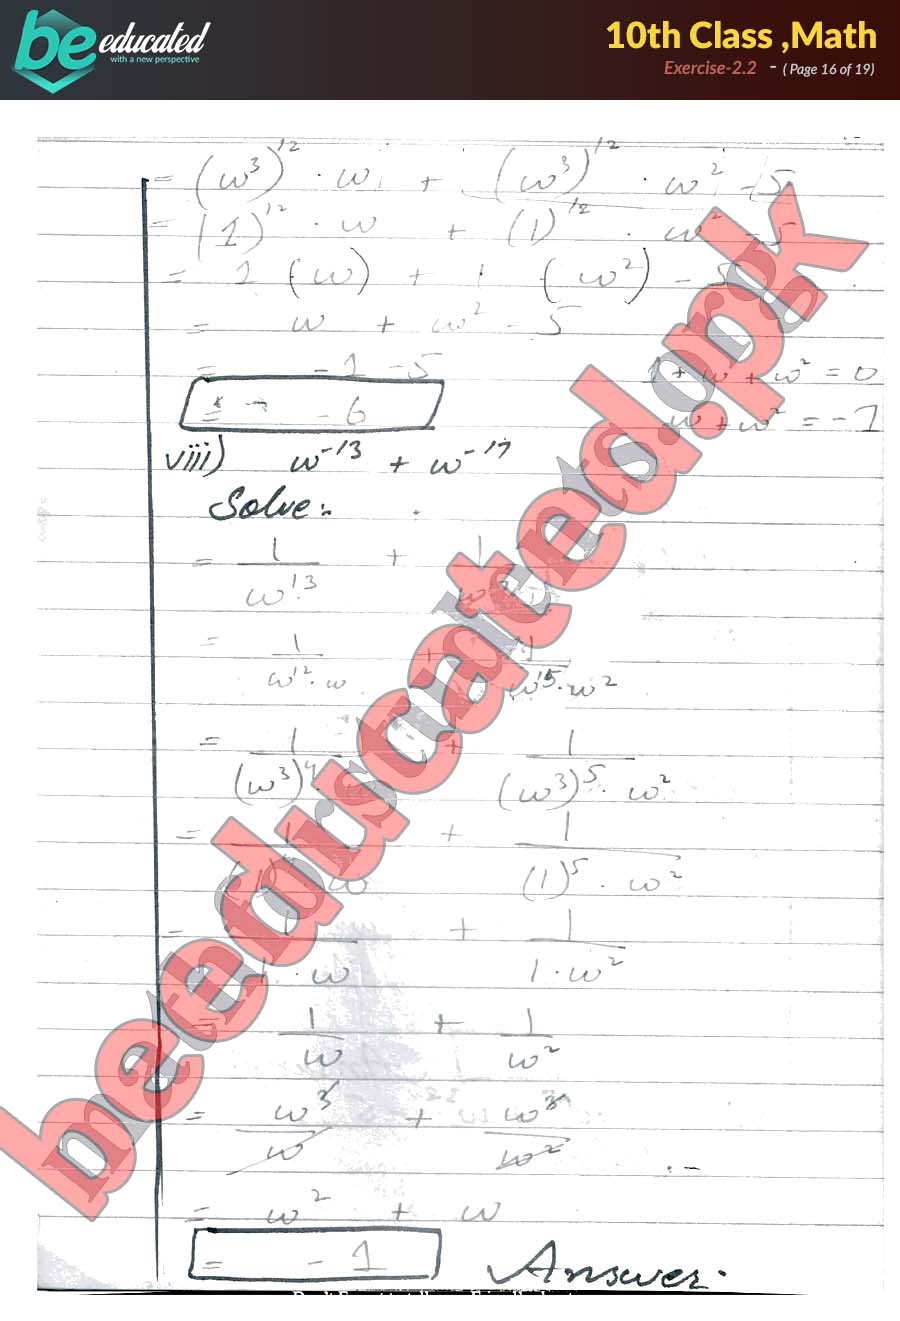 be educated
with a new perspective
10th Class ,Math
Exercise-2.2 - ( Page 16 of 19)
= (ω³)¹² · ω + (ω³)¹² · ω² - 5
= (1)¹² · ω + (1)¹² · ω² - 5
= 1 (ω) + 1 (ω²) - 5
= ω + ω² - 5
= -1 -5
1 + ω + ω² = 0
= -6
ω + ω² = -1
viii) ω⁻¹³ + ω⁻¹⁷
Solve:
= 1 + 1
ω¹³
= 1 + 1
ω¹²·ω ω¹⁵·ω²
= 1 + 1
(ω³)⁴ (ω³)⁵ · ω²
= 1 + 1
ω (1)⁵ · ω²
= 1 + 1
1 · ω 1 · ω²
= 1 + 1
ω ω²
= ω³ + ω³
ω ω²
= ω² + ω
= -1 Answer.
beeducated.pk